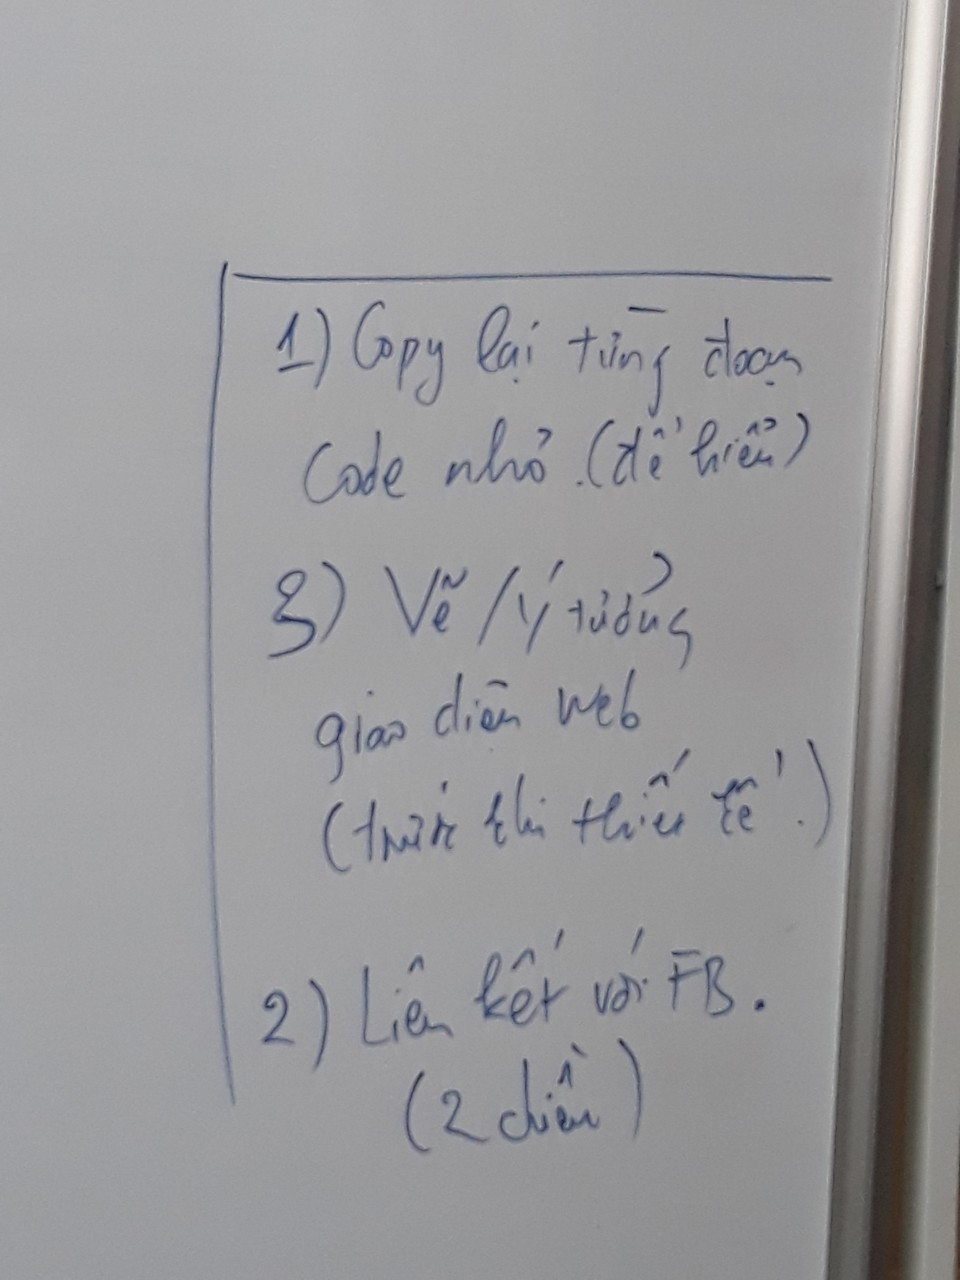 1) Copy lại từng đoạn
code nhỏ. (để hiểu)
3) Vẽ / ý tưởng
giao diện web
(trước khi thiết kế.)
2) Liên kết với FB.
(2 chiều)